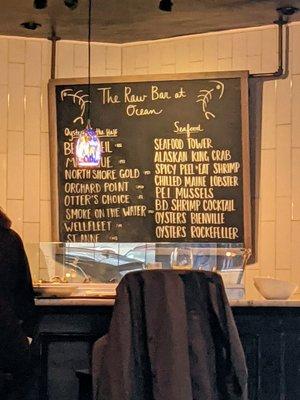 The Raw Bar at
Ocean
Oysters
NORTH SHORE GOLD
ORCHARD POINT
OTTER'S CHOICE
SMOKE ON THE WATER
WELLFLEET
ST. ANNE
Seafood
SEAFOOD TOWER
ALASKAN KING CRAB
SPICY PEEL+EAT SHRIMP
CHILLED MAINE LOBSTER
PEI MUSSELS
BD SHRIMP COCKTAIL
OYSTERS BIENVILLE
OYSTERS ROCKEFELLER